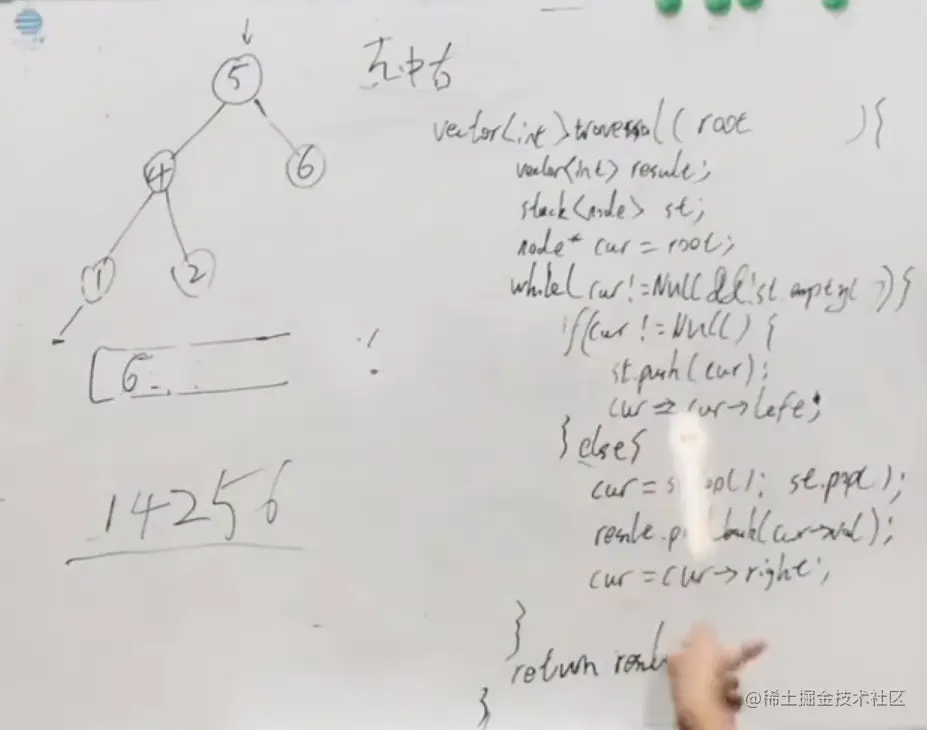 左中右
vector<int> traversal( root ){
vector<int> result;
stack<node> st;
node* cur = root;
while( cur!=Null && !st.empty( )){
if(cur != Null) {
st.push(cur);
cur = cur->left;
} else{
cur = s op(); st.pop( );
result.p back(cur->val);
cur = cur->right;
}
return resul
}
5
4 6
1 2
6
14256
@稀土掘金技术社区